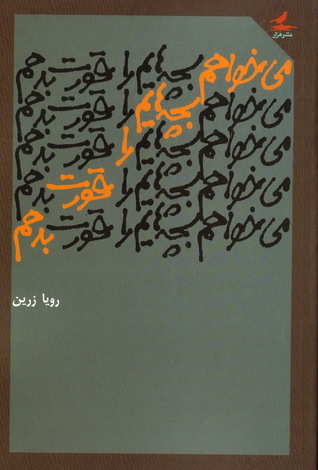 نشر فراز
می خواهم بچه هایم را قورت بدهم
می خواهم بچه هایم را قورت بدهم
می خواهم بچه هایم را قورت بدهم
می خواهم بچه هایم را قورت بدهم
می خواهم بچه هایم را قورت بدهم
رویا زرین